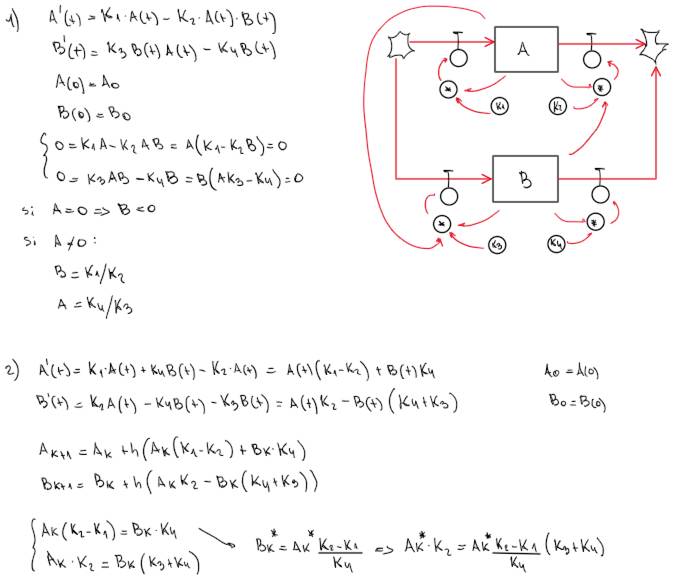 1) A'(t) = K1·A(t) - K2·A(t)·B(t)
B'(t) = K3 B(t) A(t) - K4 B(t)
A(0) = A0
B(0) = B0
{ 0 = K1A - K2AB = A(K1-K2B) = 0
0 = K3AB - K4B = B(AK3-K4) = 0
si A=0 => B=0
si A≠0:
B = K1/K2
A = K4/K3
A
* K1 K2 *
B
* K3 K4 *
2) A'(t) = K1·A(t) + K4B(t) - K2·A(t) = A(t)(K1-K2) + B(t)K4 A0 = A(0)
B'(t) = K2A(t) - K4B(t) - K3B(t) = A(t)K2 - B(t)(K4+K3) B0 = B(0)
AK+1 = AK + h(AK(K1-K2) + BK·K4)
BK+1 = BK + h(AK K2 - BK(K4+K3))
{ AK(K2-K1) = BK·K4
AK·K2 = BK(K3+K4)
BK* = AK* K2-K1/K4 => AK*·K2 = AK* K2-K1/K4 (K3+K4)